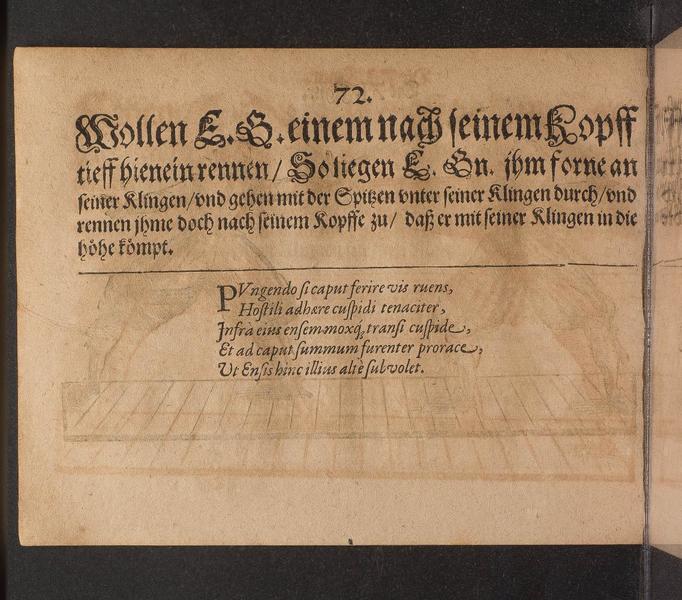 72.
Wollen E. G. einem nach seinem Kopff
tieff hienein rennen / So liegen E. Gn. jhm forne an
seiner Klingen / vnd gehen mit der Spitzen vnter seiner Klingen durch / vnd
rennen jhme doch nach seinem Kopffe zu / daß er mit seiner Klingen in die
höhe kömpt.
PVngendo si caput ferire vis ruens,
Hostili adhære cuspidi tenaciter,
Infrà eius ensem moxq́; transi cuspide,
Et ad caput summum furenter prorace,
Ut Ensis hinc illius altè subvolet.